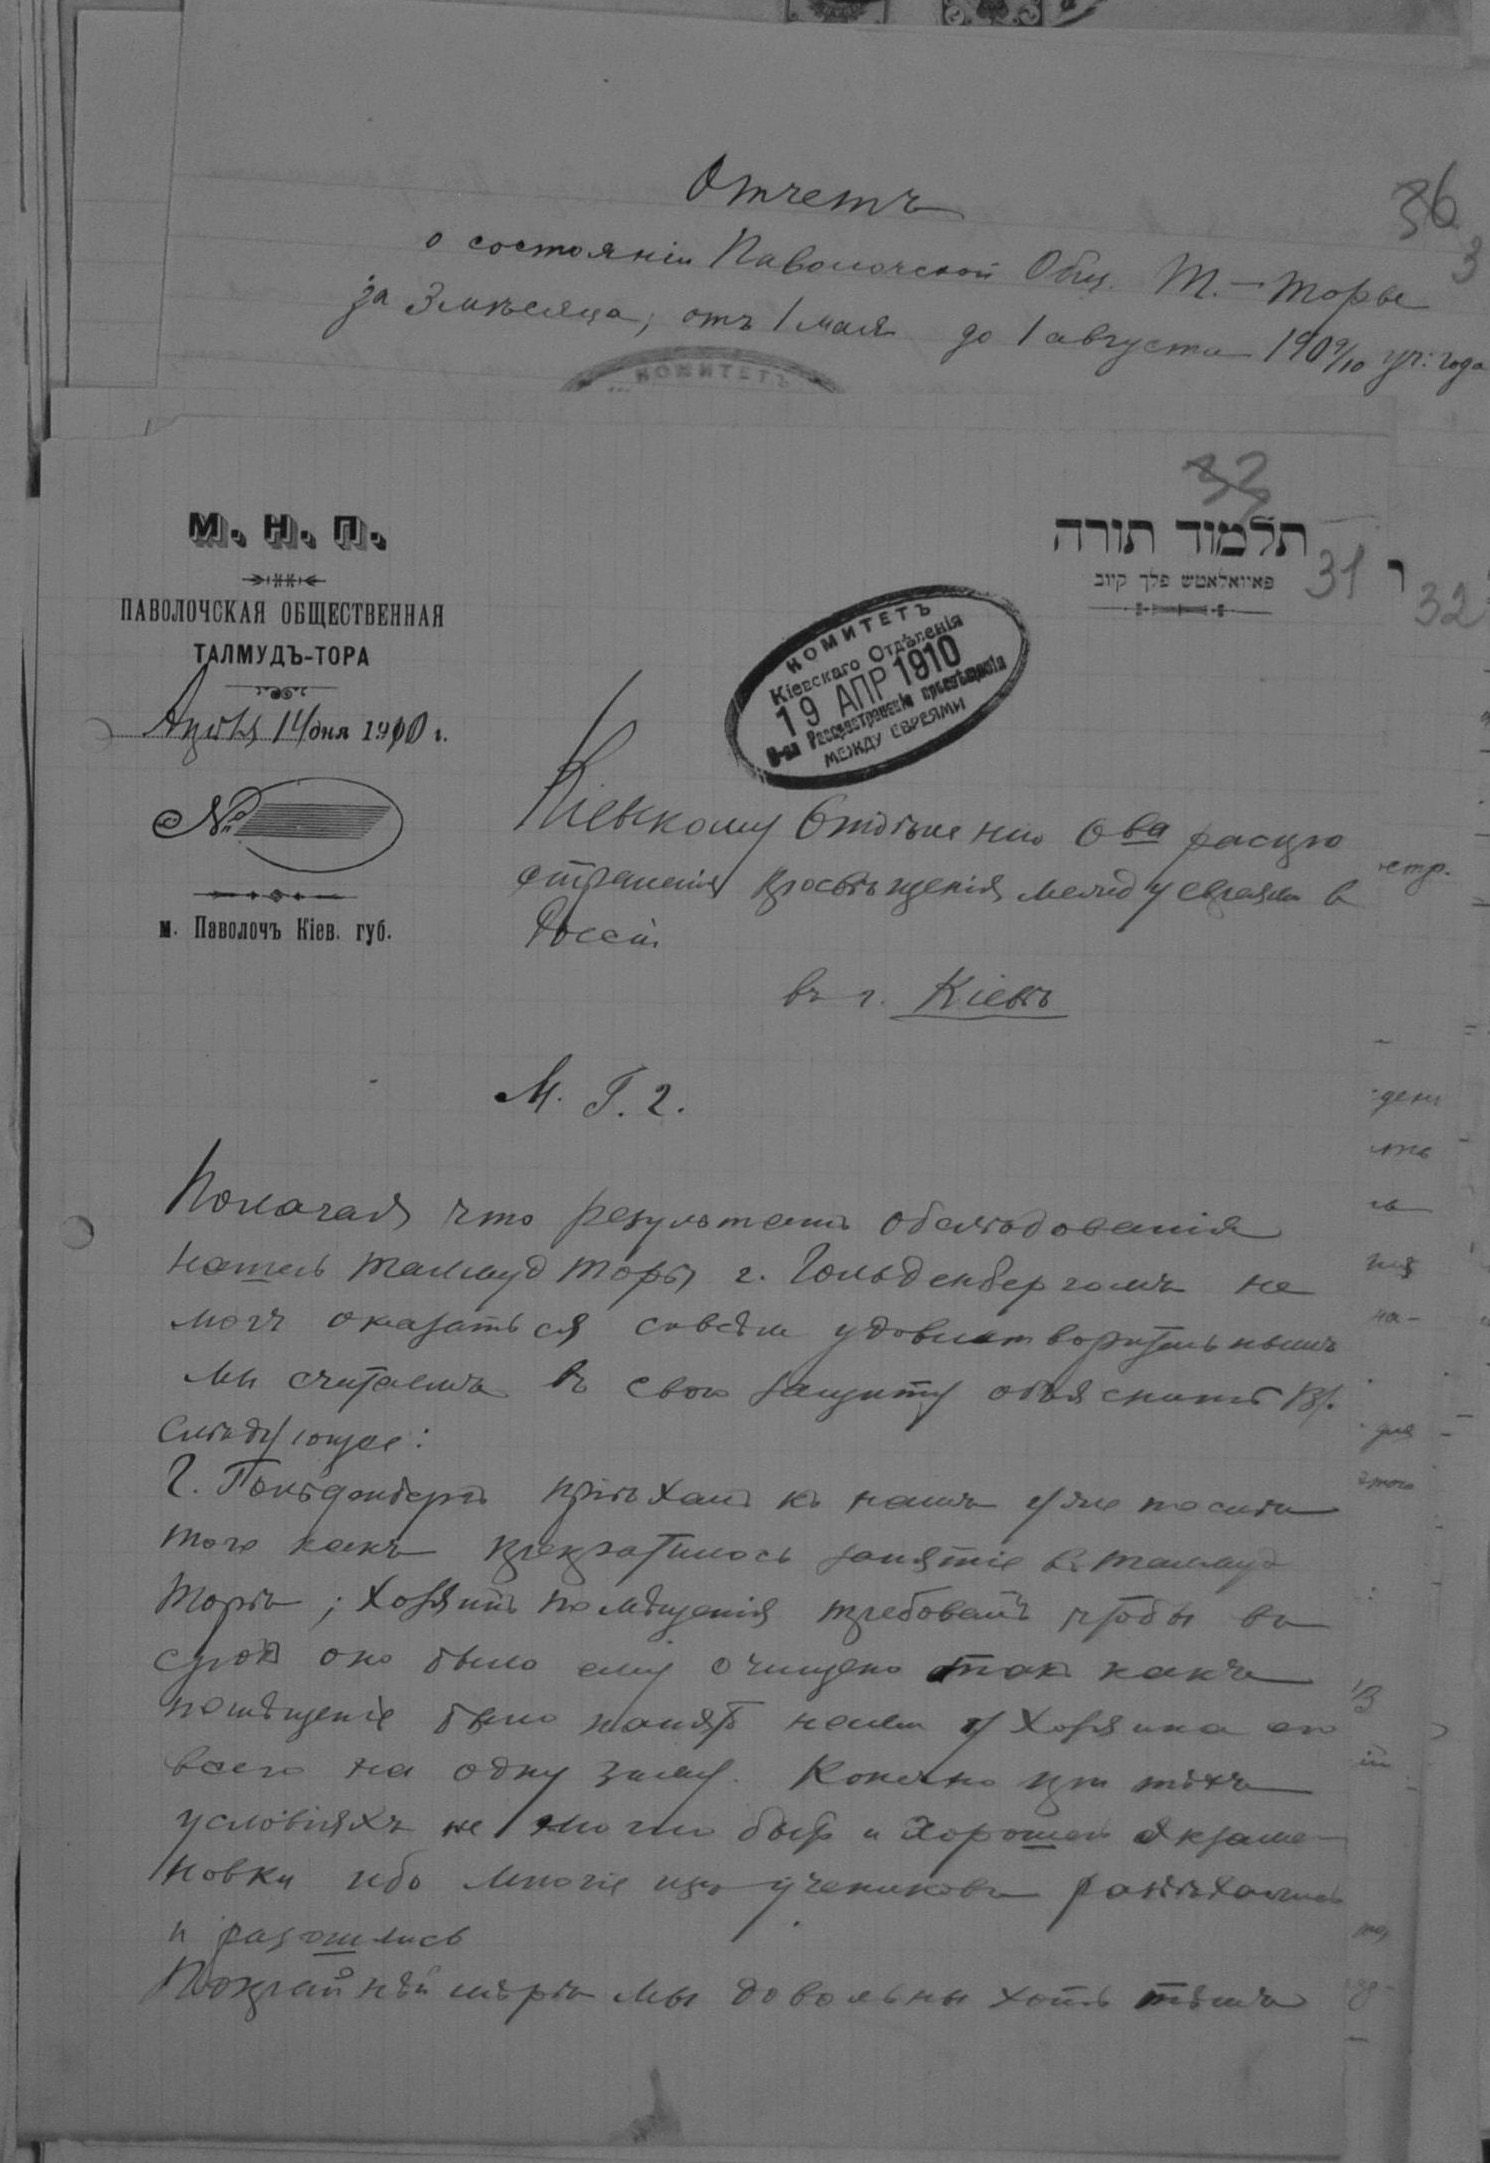 Отчетъ
о состоянiи Паволочской Общ. Т.-Торы
за 3 мѣсяца, отъ 1 мая до 1 августа 1909/10 уч: года
КОМИТЕТЪ
36
3
М. Н. П.
ПАВОЛОЧСКАЯ ОБЩЕСТВЕННАЯ
ТАЛМУДЪ-ТОРА
Апрѣля 14 дня 1910 г.
№
м. Паволочъ Кiев. губ.
32
תלמוד תורה
פאוואלאטש פלך קיוב
31
32
КОМИТЕТЪ
Кiевскаго Отдѣленiя
19 АПР 1910
О-ва Распространенiя просвѣщенiя
МЕЖДУ ЕВРЕЯМИ
Кiевскому Отдѣленiю О-ва распро
странения просвѣщенiя между евреями в
Россiи
въ г. Кiевѣ
М. Г. г.
Полагая что результатъ обслѣдованiя
нашей талмуд торы г. Гольденбергомъ не
могъ оказаться совсѣм удовлетворительнымъ
мы считаемъ въ свою защиту объяснить
слѣдующее:
Г. Гольденбергъ прiѣхалъ къ намъ уже послѣ
того какъ прекратилось занятiе въ талмуд
торѣ; хозяинъ помѣщенiя требовалъ чтобы въ
срокъ оно было ему очищено такъ какъ
помѣщенiе было нанято нами у хозяина
всего на одну зиму. Конечно при тѣхъ
условiяхъ не могло быть и хорошей экзаме-
новки ибо многiе изъ учениковъ разъѣхались
и разошлись
Покрайнѣй мѣрѣ мы довольны хоть тѣмъ